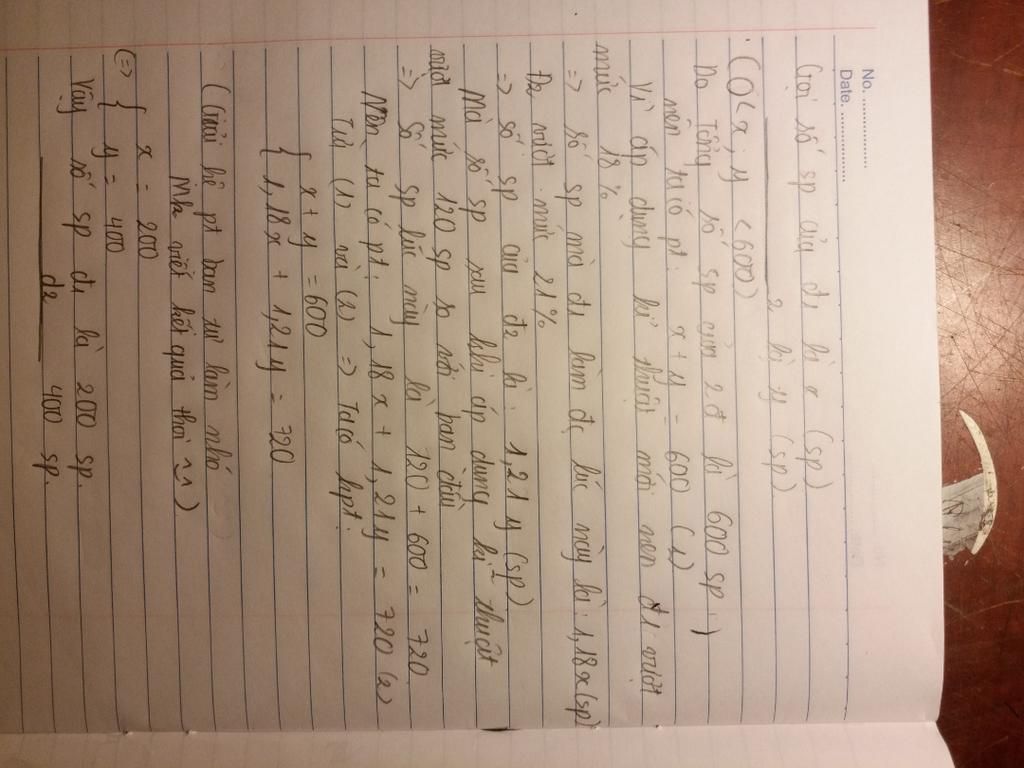 No. ................
Date. ................
Gọi số sp của đ1 là x (sp)
2 là y (sp)
(0 < x ; y < 600)
Do tổng số sp của 2 đ là 600 sp
nên ta có pt: x + y = 600 (1)
Vì áp dụng kĩ thuật mới nên đ1 vượt
mức 18%
=> số sp mà đ1 làm đc lúc này là: 1,18x (sp)
Đ2 vượt mức 21%
=> số sp của đ2 là: 1,21y (sp)
Mà số sp sau khi áp dụng kĩ thuật
vượt mức 120 sp so với ban đầu
=> Số sp lúc này là 120 + 600 = 720
Nên ta có pt: 1,18x + 1,21y = 720 (2)
Từ (1) và (2) => Ta có hpt:
{ x + y = 600
1,18x + 1,21y = 720
(Giải hệ pt bạn tự làm nhó
Mik viết kết quả thôi ~~)
(=> { x = 200
y = 400
Vậy số sp đ1 là 200 sp.
đ2 400 sp.